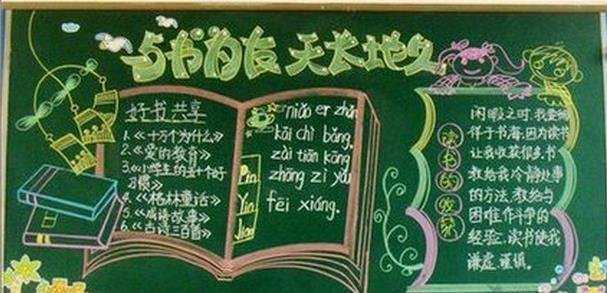 与书为友 天长地久
好书共享
1.《十万个为什么》
2.《爱的教育》
3.《小学生的五十个好
习惯》
4.《格林童话》
5.《成语故事》
6.《古诗三百首》
Pin
Yin
niǎo er zhǎn
kāi chì bǎng,
zài tiān kōng
zhōng zì yóu
fēi xiáng.
读书的收获
闲暇之时,我喜
得于书海,因为读书
让我收获很多,书
教给我冷静处事
的方法,教给与
困难作斗争的
经验,读书使我
谦虚、谨慎。